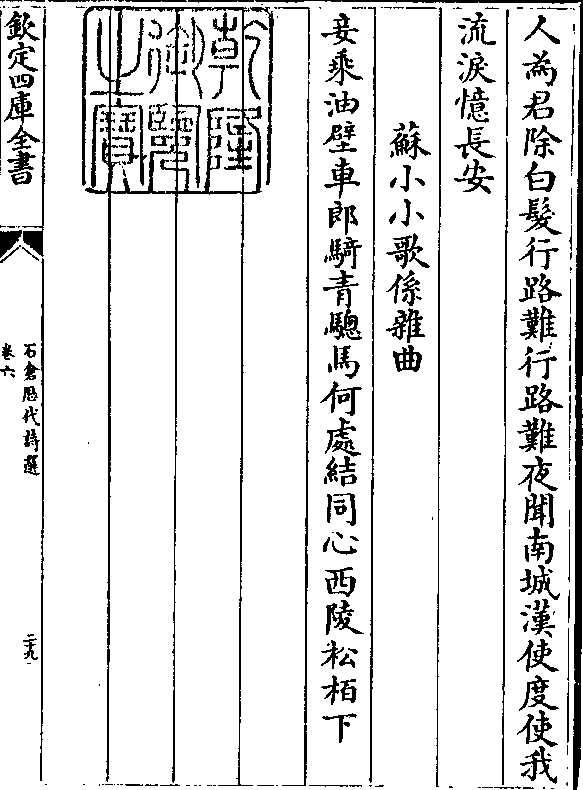 人為君除白髮行路難行路難夜聞南城漢使度使我
流淚憶長安
蘇小小歌係雜曲
妾乘油壁車郎騎青驄馬何處結同心西陵松栢下
乾隆御覽之寶
欽定四庫全書
石倉歴代詩選
卷六
二十九